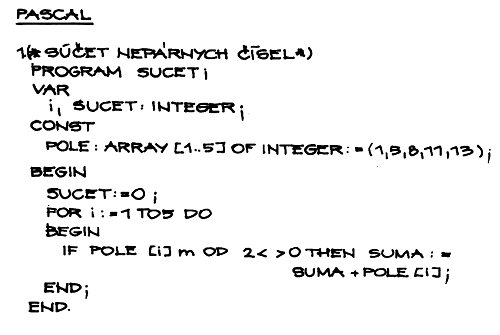 PASCAL
1(* SÚČET NEPÁRNYCH ČÍSEL*)
PROGRAM SUCET;
VAR
i, SUCET: INTEGER;
CONST
POLE: ARRAY [1..5] OF INTEGER:=(1,5,8,11,13);
BEGIN
SUCET:=0;
FOR i:=1 TO5 DO
BEGIN
IF POLE [i] m OD 2< >0 THEN SUMA:=
SUMA+POLE[i];
END;
END.